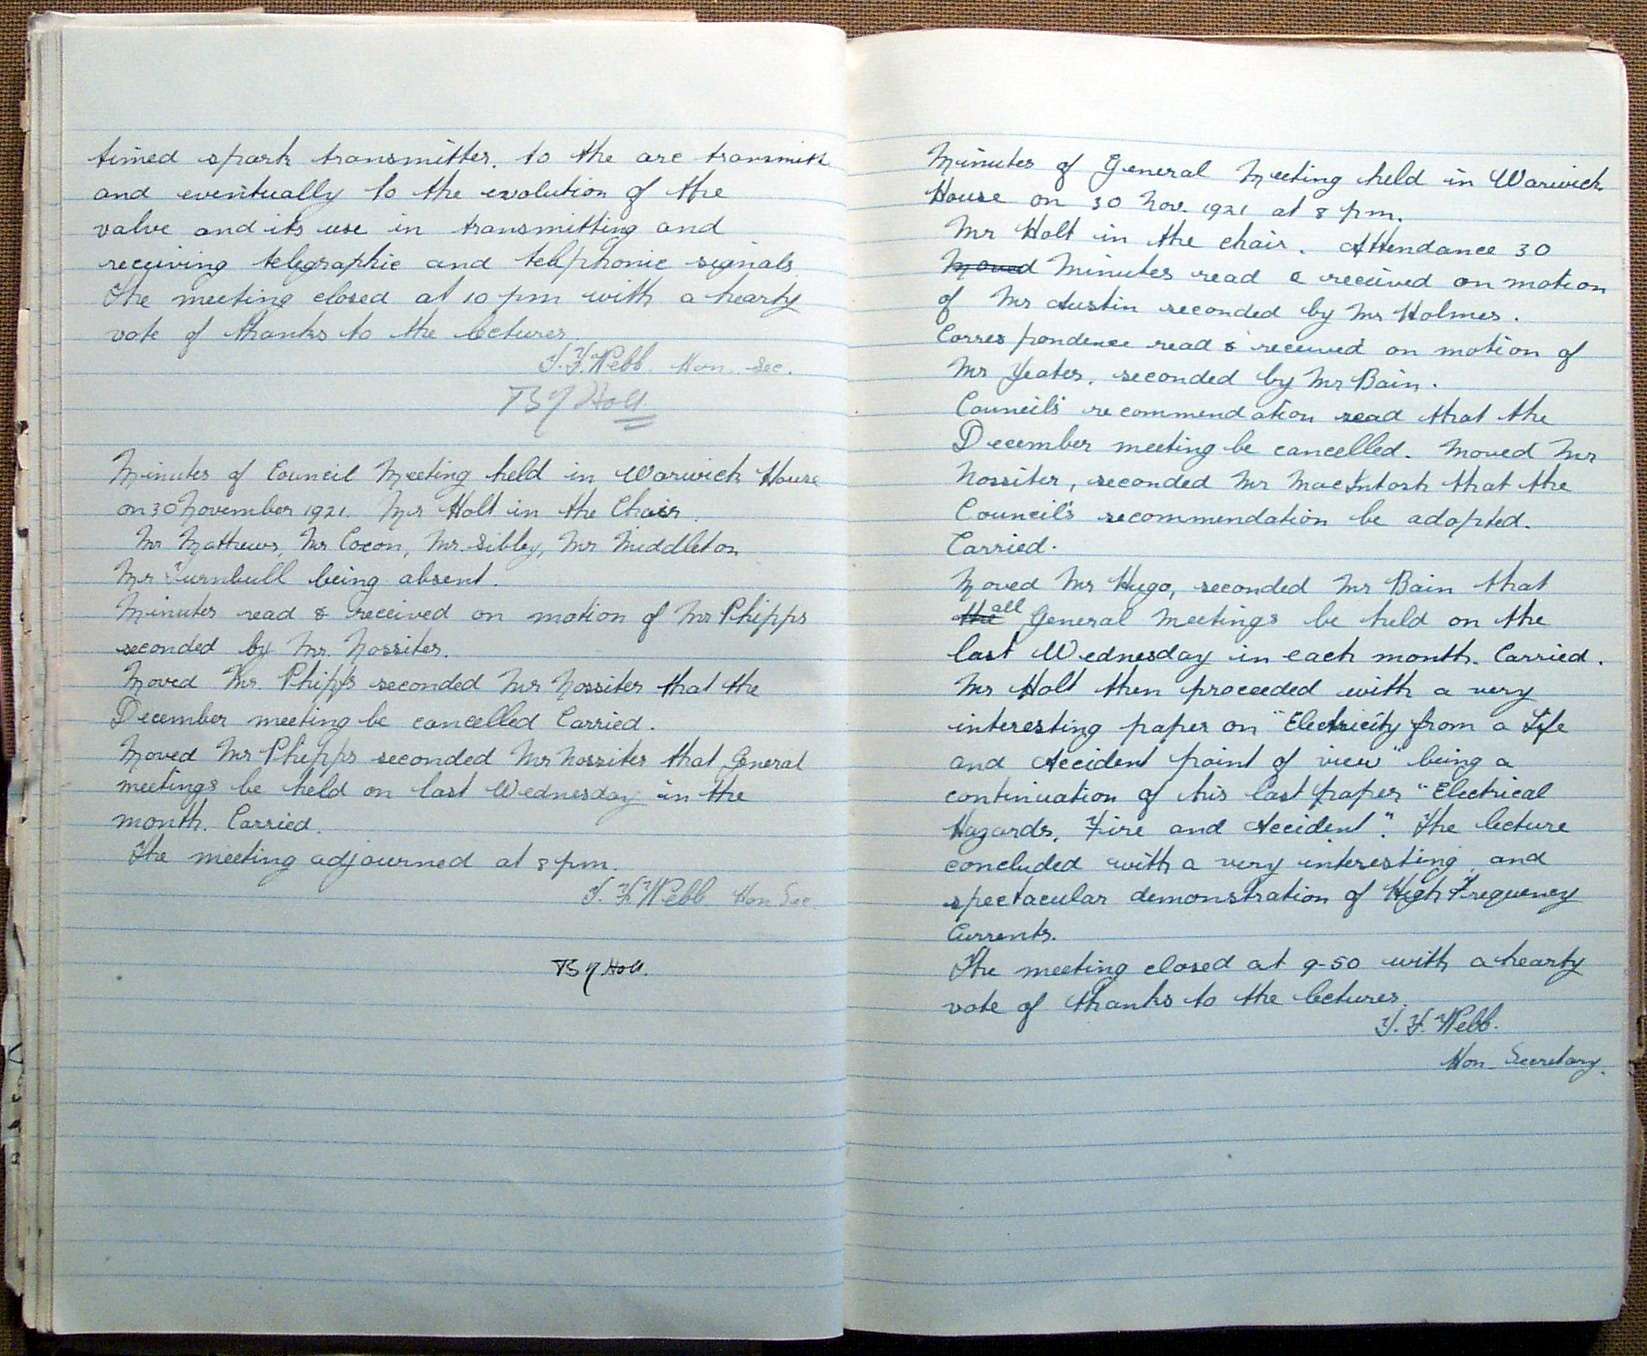 timed spark transmitter. to the arc transmitt
and eventually to the evolution of the
valve and its use in transmitting and
receiving telegraphic and telephonic signals.
The meeting closed at 10 pm with a hearty
vote of thanks to the lecturer
Webb. Hon. Sec.
Holt
Minutes of Council Meeting held in Warwick House
on 30 November 1921. Mr Holt in the Chair.
Mr Mathews, Mr Cocon, Mr. Sibley, Mr Middleton
Mr Turnbull being absent.
Minutes read & received on motion of Mr Phipps
seconded by Mr. Nossiter.
Moved Mr. Phipps seconded Mr Nossiter that the
December meeting be cancelled Carried.
Moved Mr Phipps seconded Mr Nossiter that General
meetings be held on last Wednesday in the
month. Carried.
The meeting adjourned at 8 pm.
Webb Hon Sec.
Holt.
Minutes of General Meeting held in Warwick
House on 30 Nov. 1921 at 8 pm.
Mr Holt in the chair. Attendance 30
Moved Minutes read & received on motion
of Mr Austin seconded by Mr Holmes.
Correspondence read & received on motion of
Mr Yeates, seconded by Mr Bain.
Council's recommendation read that the
December meeting be cancelled. Moved Mr
Nossiter, seconded Mr MacIntosh that the
Council's recommendation be adopted.
Carried.
Moved Mr Hugo, seconded Mr Bain that
the all General Meetings be held on the
last Wednesday in each month. Carried.
Mr Holt then proceeded with a very
interesting paper on "Electricity from a Life
and Accident point of view" being a
continuation of his last paper "Electrical
Hazards, Fire and Accident". The lecture
concluded with a very interesting and
spectacular demonstration of High Frequency
Currents.
The meeting closed at 9-50 with a hearty
vote of thanks to the lecturer.
Webb.
Hon Secretary.